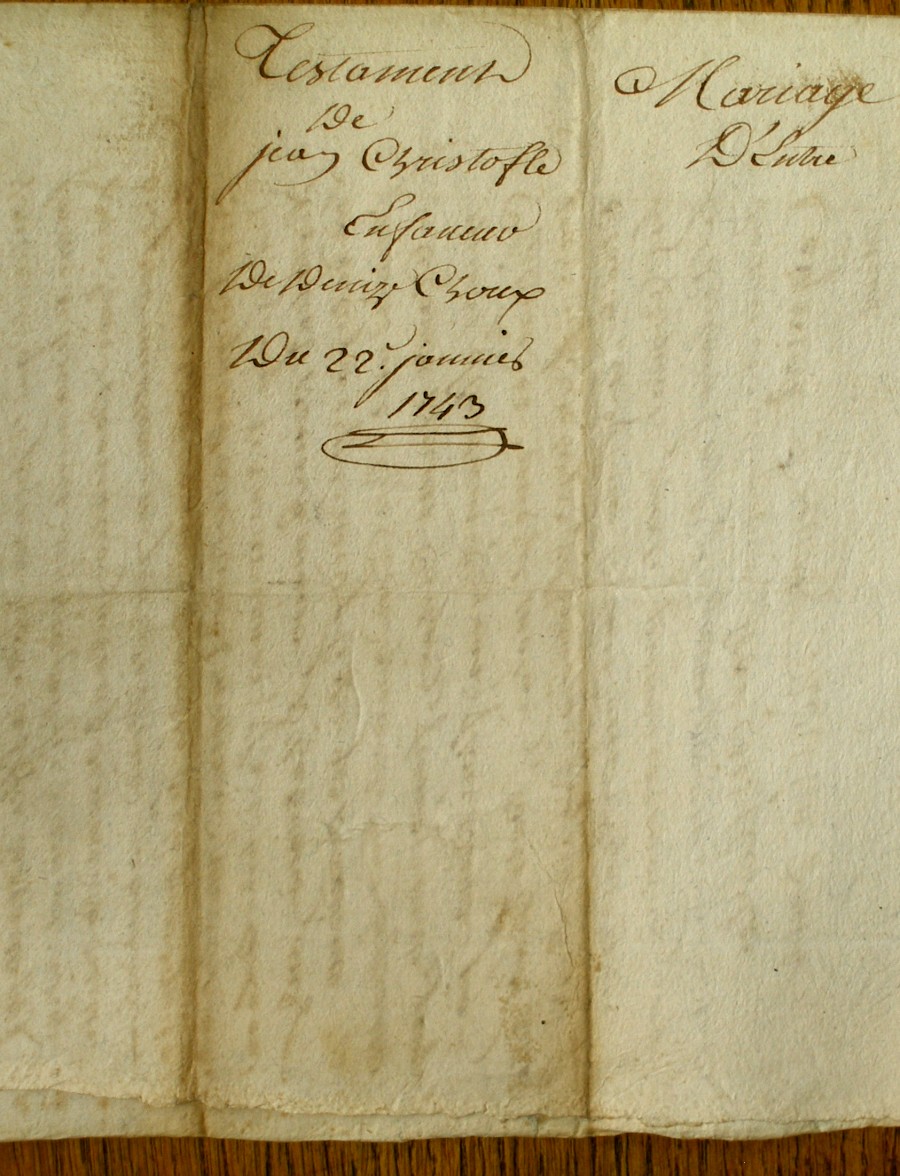 Testament
De
jean Christofle
En faveur
De Denize Choux
Du 22e. janvier
1743
Mariage
D'Entre